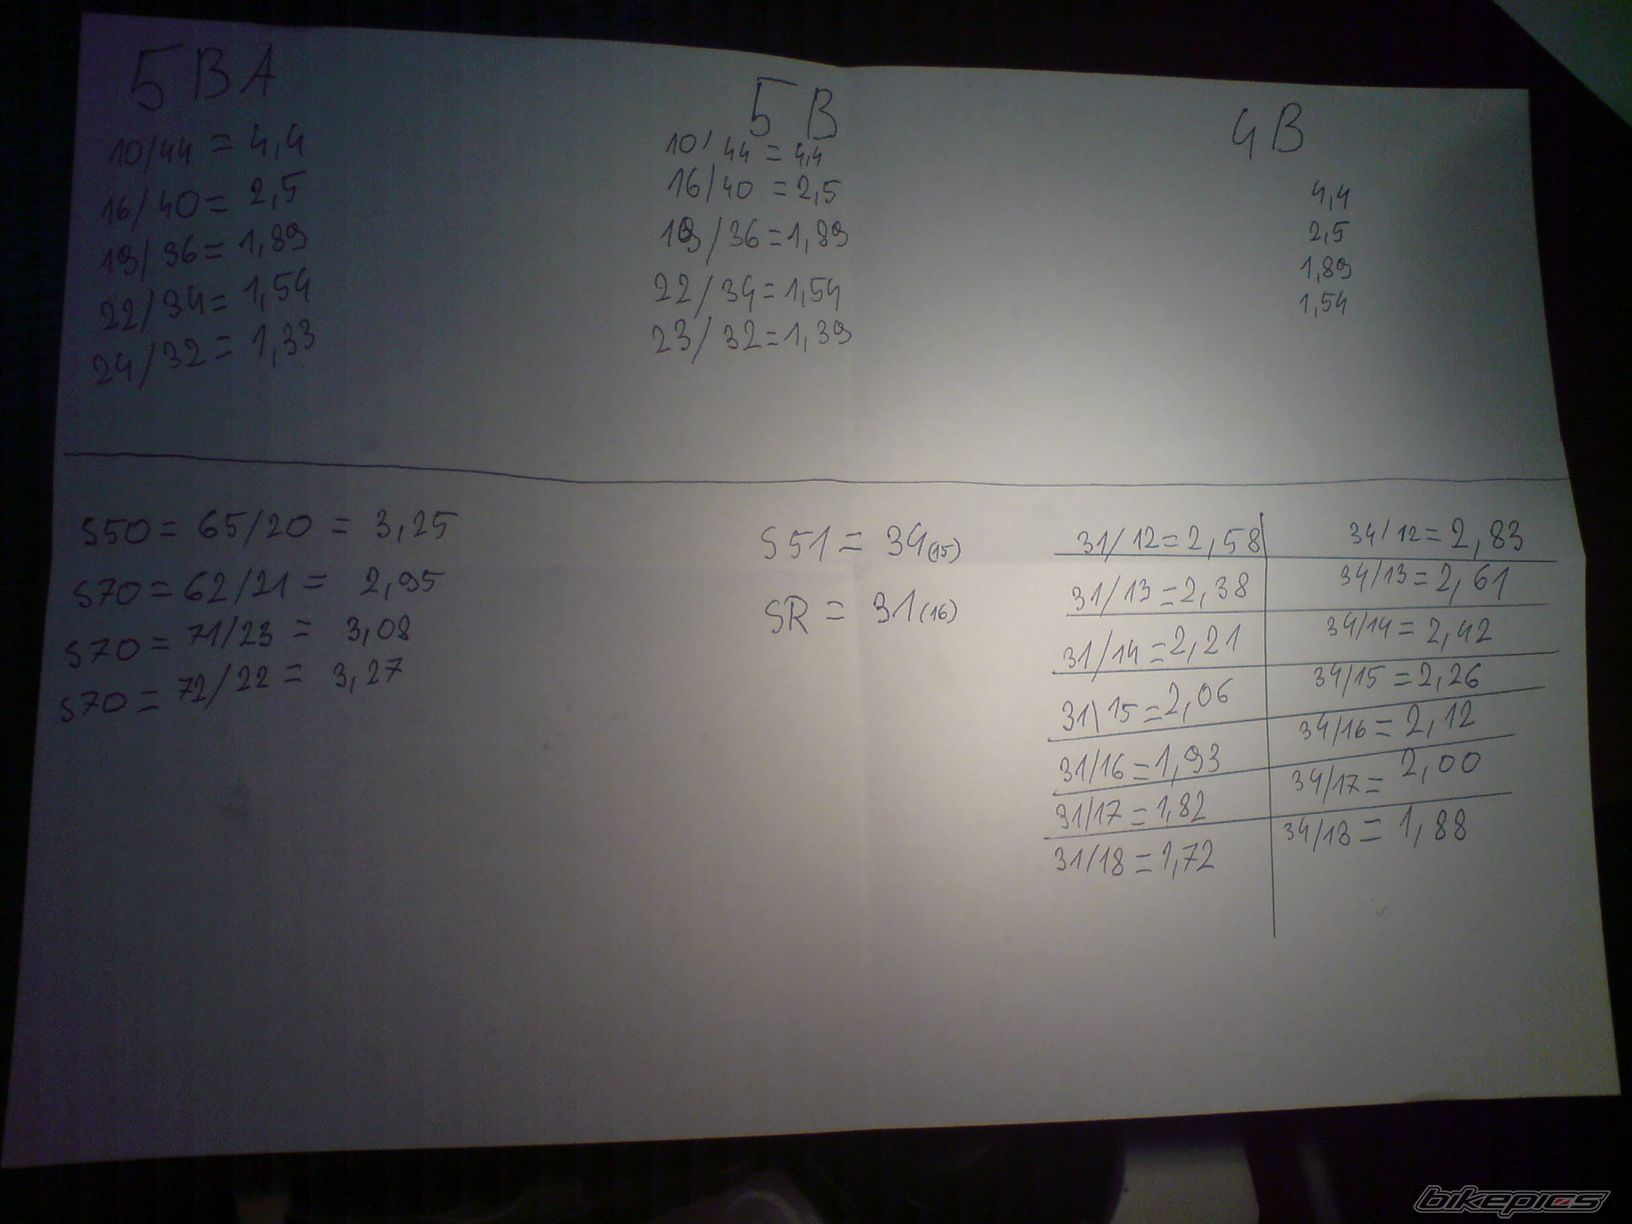 5BA
10/44 = 4,4
16/40 = 2,5
19/36 = 1,89
22/34 = 1,54
24/32 = 1,33
5B
10/44 = 4,4
16/40 = 2,5
19/36 = 1,89
22/34 = 1,54
23/32 = 1,39
4B
4,4
2,5
1,89
1,54
S50 = 65/20 = 3,25
S70 = 62/21 = 2,95
S70 = 71/23 = 3,08
S70 = 72/22 = 3,27
S51 = 34(15)
SR = 31(16)
31/12 = 2,58
31/13 = 2,38
31/14 = 2,21
31\15 = 2,06
31/16 = 1,93
31/17 = 1,82
31/18 = 1,72
34/12 = 2,83
34/13 = 2,61
34/14 = 2,42
34/15 = 2,26
34/16 = 2,12
34/17 = 2,00
34/18 = 1,88
bikepics